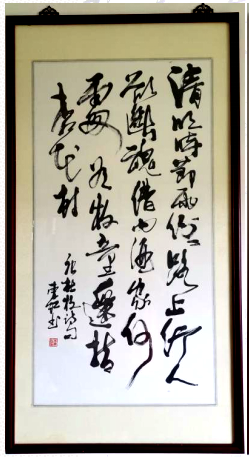 清明時節雨紛紛路上行人
欲斷魂借问酒家何
處有牧童遥指
杏花村
唐杜牧诗句